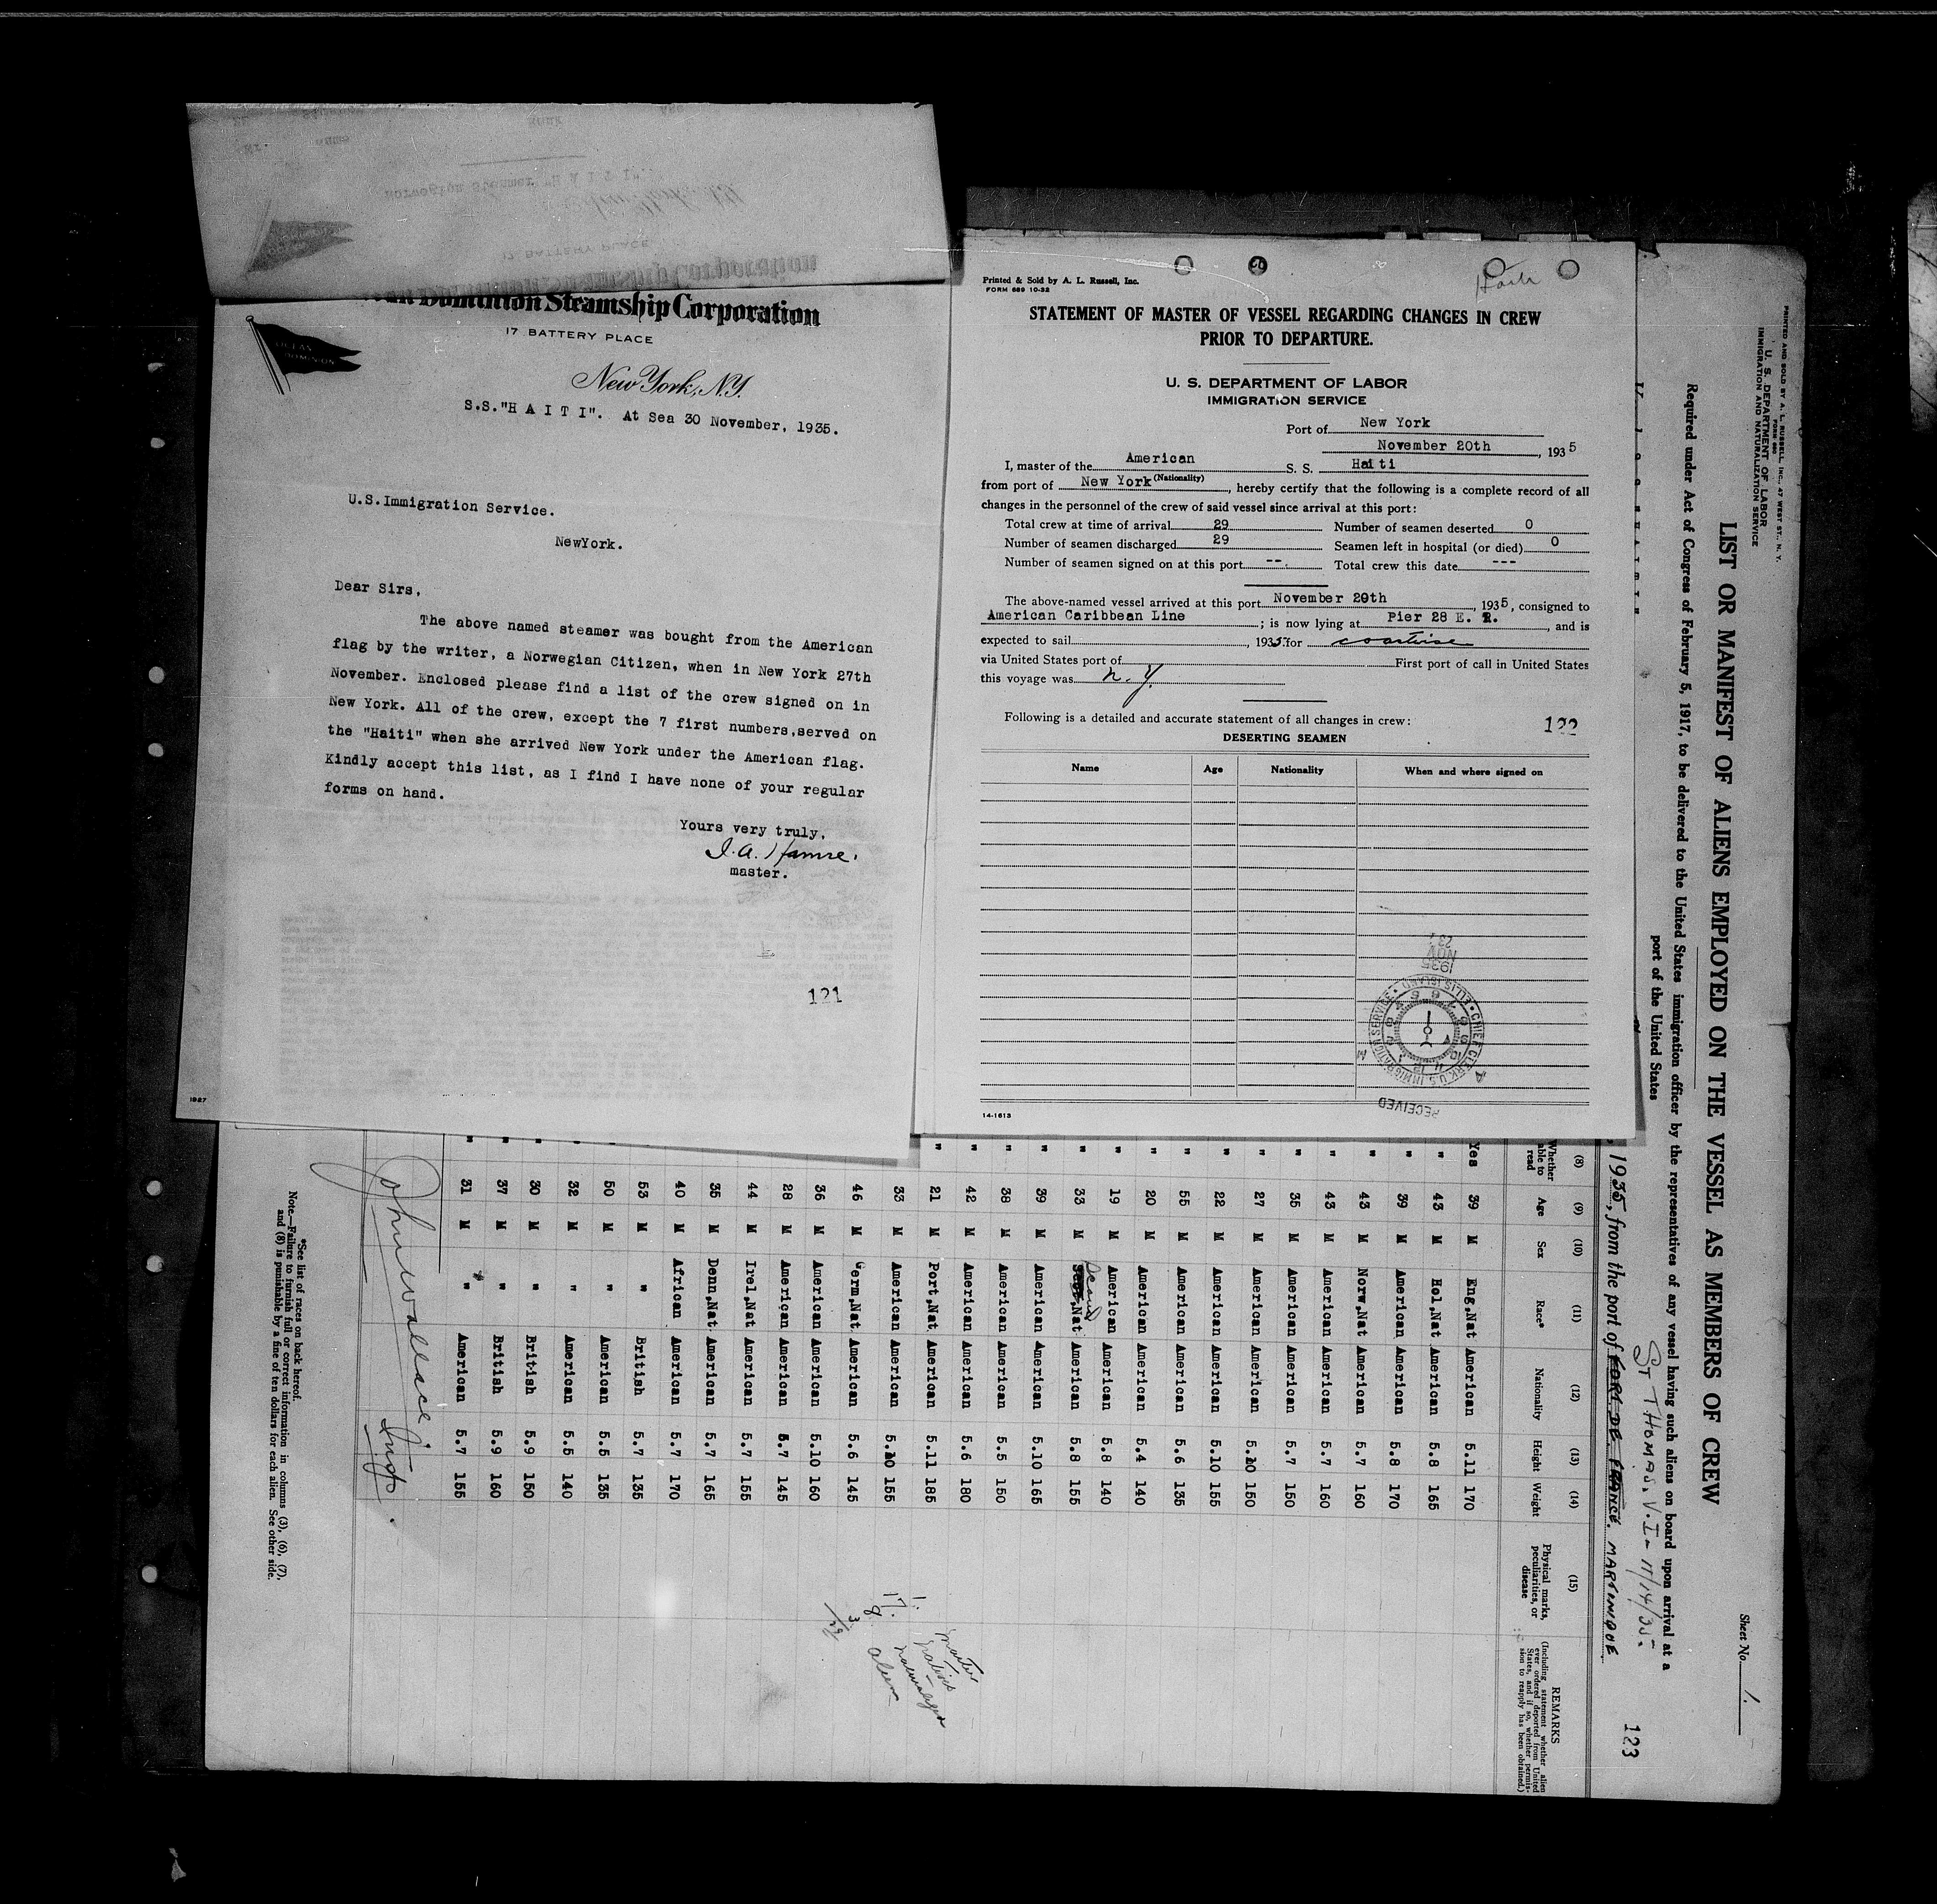 Dominion Steamship Corporation
17 BATTERY PLACE
New York, N.Y.
S.S."H A I T I". At Sea 30 November, 1935.
U.S.Immigration Service.
NewYork.
Dear Sirs,
The above named steamer was bought from the American
flag by the writer, a Norwegian Citizen, when in New York 27th
November. Enclosed please find a list of the crew signed on in
New York. All of the crew, except the 7 first numbers,served on
the "Haiti" when she arrived New York under the American flag.
Kindly accept this list, as I find I have none of your regular
forms on hand.
Yours very truly,
master.
121
1927
Printed & Sold by A. L. Russell, Inc.
FORM 689 10-32
STATEMENT OF MASTER OF VESSEL REGARDING CHANGES IN CREW
PRIOR TO DEPARTURE.
U. S. DEPARTMENT OF LABOR
IMMIGRATION SERVICE
Port of New York
November 20th, 1935
I, master of the American S. S. Haiti
(Nationality)
from port of New York, hereby certify that the following is a complete record of all
changes in the personnel of the crew of said vessel since arrival at this port:
Total crew at time of arrival 29 Number of seamen deserted 0
Number of seamen discharged 29 Seamen left in hospital (or died) 0
Number of seamen signed on at this port --. Total crew this date ---
The above-named vessel arrived at this port November 20th, 1935, consigned to
American Caribbean Line; is now lying at Pier 28 E. R., and is
expected to sail, 1935 for coastwise
via United States port of First port of call in United States
this voyage was N. Y.
Following is a detailed and accurate statement of all changes in crew:
122
DESERTING SEAMEN
Name Age Nationality When and where signed on
RECEIVED
CHIEF CLERK U.S. IMMIGRATION SERVICE • ELLIS ISLAND •
1935
NOV
23
14-1613
PRINTED AND SOLD BY A. L. RUSSELL, INC., 47 WEST ST., N. Y.
U. S. DEPARTMENT OF LABOR
IMMIGRATION AND NATURALIZATION SERVICE
Sheet No. 1.
LIST OR MANIFEST OF ALIENS EMPLOYED ON THE VESSEL AS MEMBERS OF CREW
Required under Act of Congress of February 5, 1917, to be delivered to the United States immigration officer by the representatives of any vessel having such aliens on board upon arrival at a
port of the United States
ST THOMAS. V.I- 11/14/35-
1935, from the port of FORT DE FRANCE. MARTINQUE.
123
(8) (9) (10) (11) (12) (13) (14) (15)
Whether able to read Age Sex Race* Nationality Height Weight Physical marks, peculiarities, or disease
REMARKS
(Including statement whether alien
ever ordered deported from United
States, and if so, whether permis-
sion to reapply has been obtained.)
Yes 39 M Eng,Nat American 5.11 170
" 43 M Hol,Nat American 5.8 165
" 39 M American American 5.8 170
" 43 M Norw,Nat American 5.7 160
" 43 M American American 5.7 160
" 35 M American American 5.7 150
" 27 M American American 5.10 150
" 22 M American American 5.10 155
" 55 M American American 5.6 135
" 20 M American American 5.4 140
" 19 M American American 5.8 140
" 33 M Scand,Nat American 5.8 155
" 39 M American American 5.10 165
" 38 M American American 5.5 150
" 42 M American American 5.6 180
" 21 M Port,Nat American 5.11 185
33 M American American 5.10 155
46 M Germ,Nat American 5.6 145
36 M American American 5.10 160
28 M American American 5.7 145
44 M Irel,Nat American 5.7 155
35 M Denn,Nat American 5.7 165
40 M African American 5.7 170
53 M " British 5.7 135
50 M " American 5.5 135
32 M " American 5.5 140
30 M " British 5.9 150
37 M " British 5.9 160
31 M " American 5.7 155
1. master
17. native
8.
3 alien
29
John Wallace
Insp.
*See list of races on back hereof.
Note.—Failure to furnish full or correct information in columns (3), (6), (7),
and (8) is punishable by a fine of ten dollars for each alien. See other side.